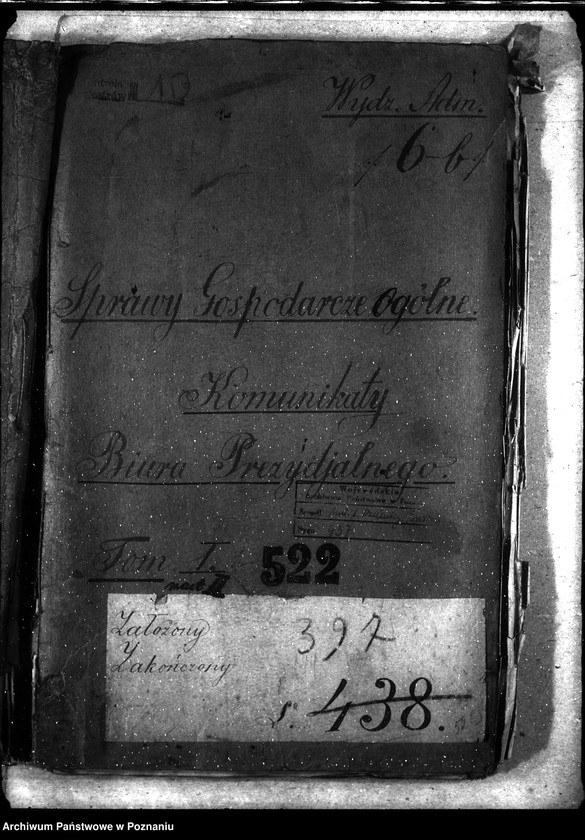 Wydz. Adm.
/6-b/
Sprawy Gospodarcze ogólne.
Komunikaty
Biura Prezydjalnego.
Tom I.
522
Założony
Zakończony
397
438.
Archiwum Państwowe w Poznaniu